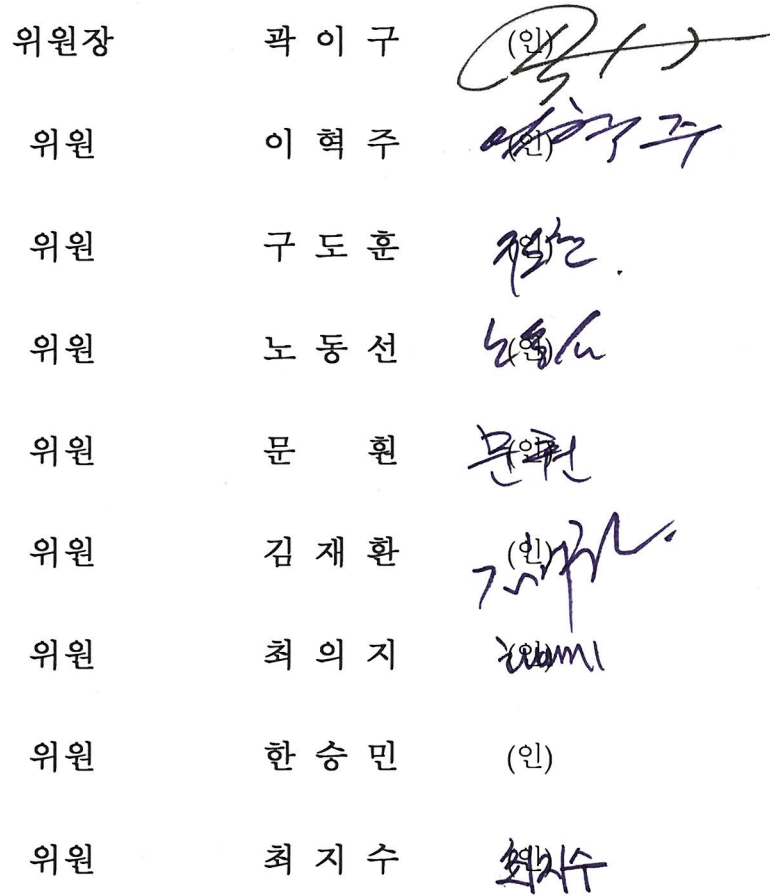 위원장 곽이구 (인)
위원 이혁주 (인) 이혁주
위원 구도훈 (인)
위원 노동선 (인)
위원 문 훤 (인) 문훤
위원 김재환 (인)
위원 최의지 (인)
위원 한승민 (인)
위원 최지수 (인) 최지수